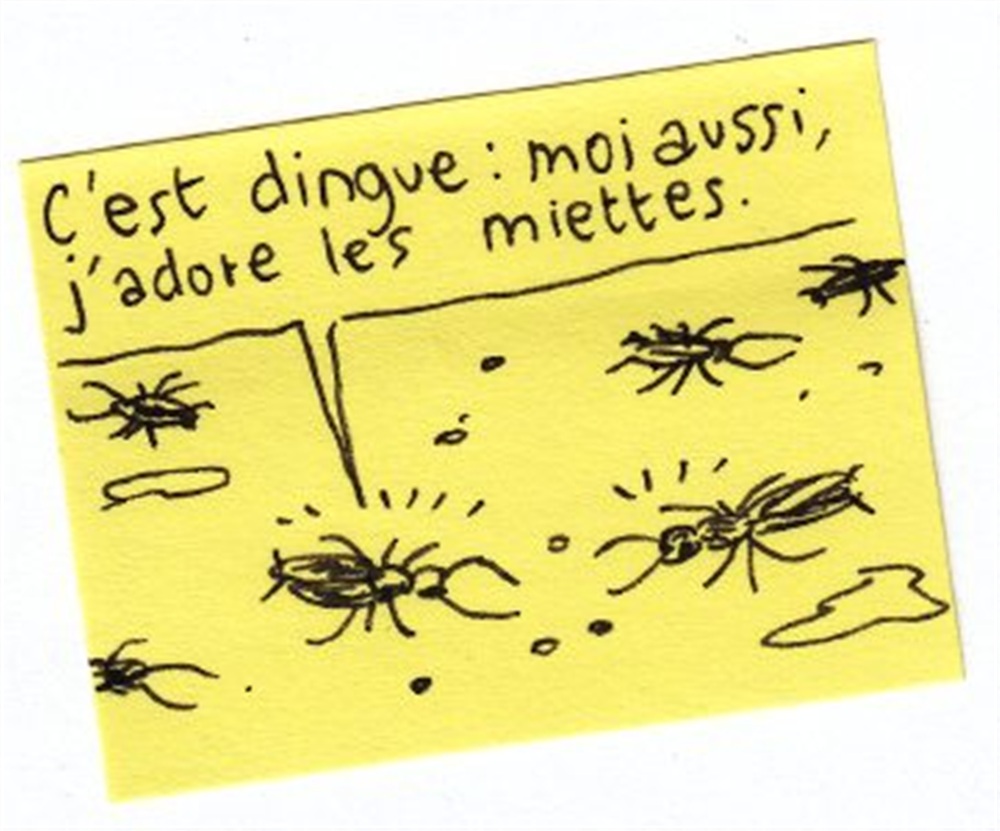 C'est dingue : moi aussi,
j'adore les miettes.